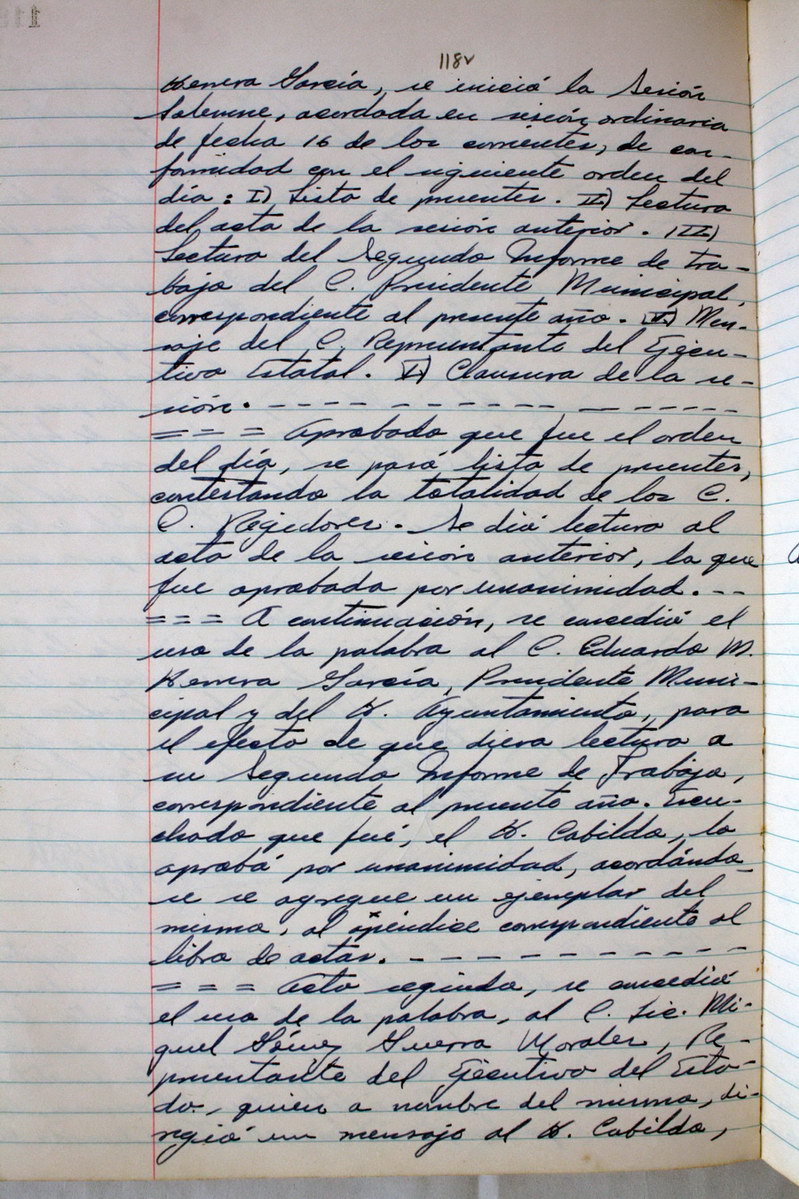 118v
Herrera García, se inició la Sesión
Solemne, acordada en sesión ordinaria
de fecha 16 de los corrientes, de con-
formidad con el siguiente orden del
día: I) Lista de presentes. II) Lectura
del acta de la sesión anterior. III)
Lectura del Segundo Informe de tra-
bajo del C. Presidente Municipal,
correspondiente al presente año. IV) Men-
saje del C. Representante del Ejecu-
tivo Estatal. V) Clausura de la se-
sión. - - - - - - - - - - - - - - -
= = = Aprobado que fue el orden
del día, se pasó lista de presentes,
contestando la totalidad de los C.
C. Regidores. Se dió lectura al
acta de la sesión anterior, la que
fue aprobada por unanimidad. - -
= = = A continuación, se concedió el
uso de la palabra al C. Eduardo M.
Herrera García, Presidente Muni-
cipal y del H. Ayuntamiento, para
el efecto de que diera lectura a
su Segundo Informe de Trabajo,
correspondiente al presente año. Escu-
chado que fué, el H. Cabildo, lo
aprobó por unanimidad, acordándo-
se se agregue un ejemplar del
mismo, al apéndice correspondiente al
libro de actas. - - - - - - - - - -
= = = Acto seguido, se concedió
el uso de la palabra, al C. Lic. Mi-
guel Guerra Morales, Re-
presentante del Ejecutivo del Esta-
do, quien a nombre del mismo, di-
rigió un mensaje al H. Cabildo,